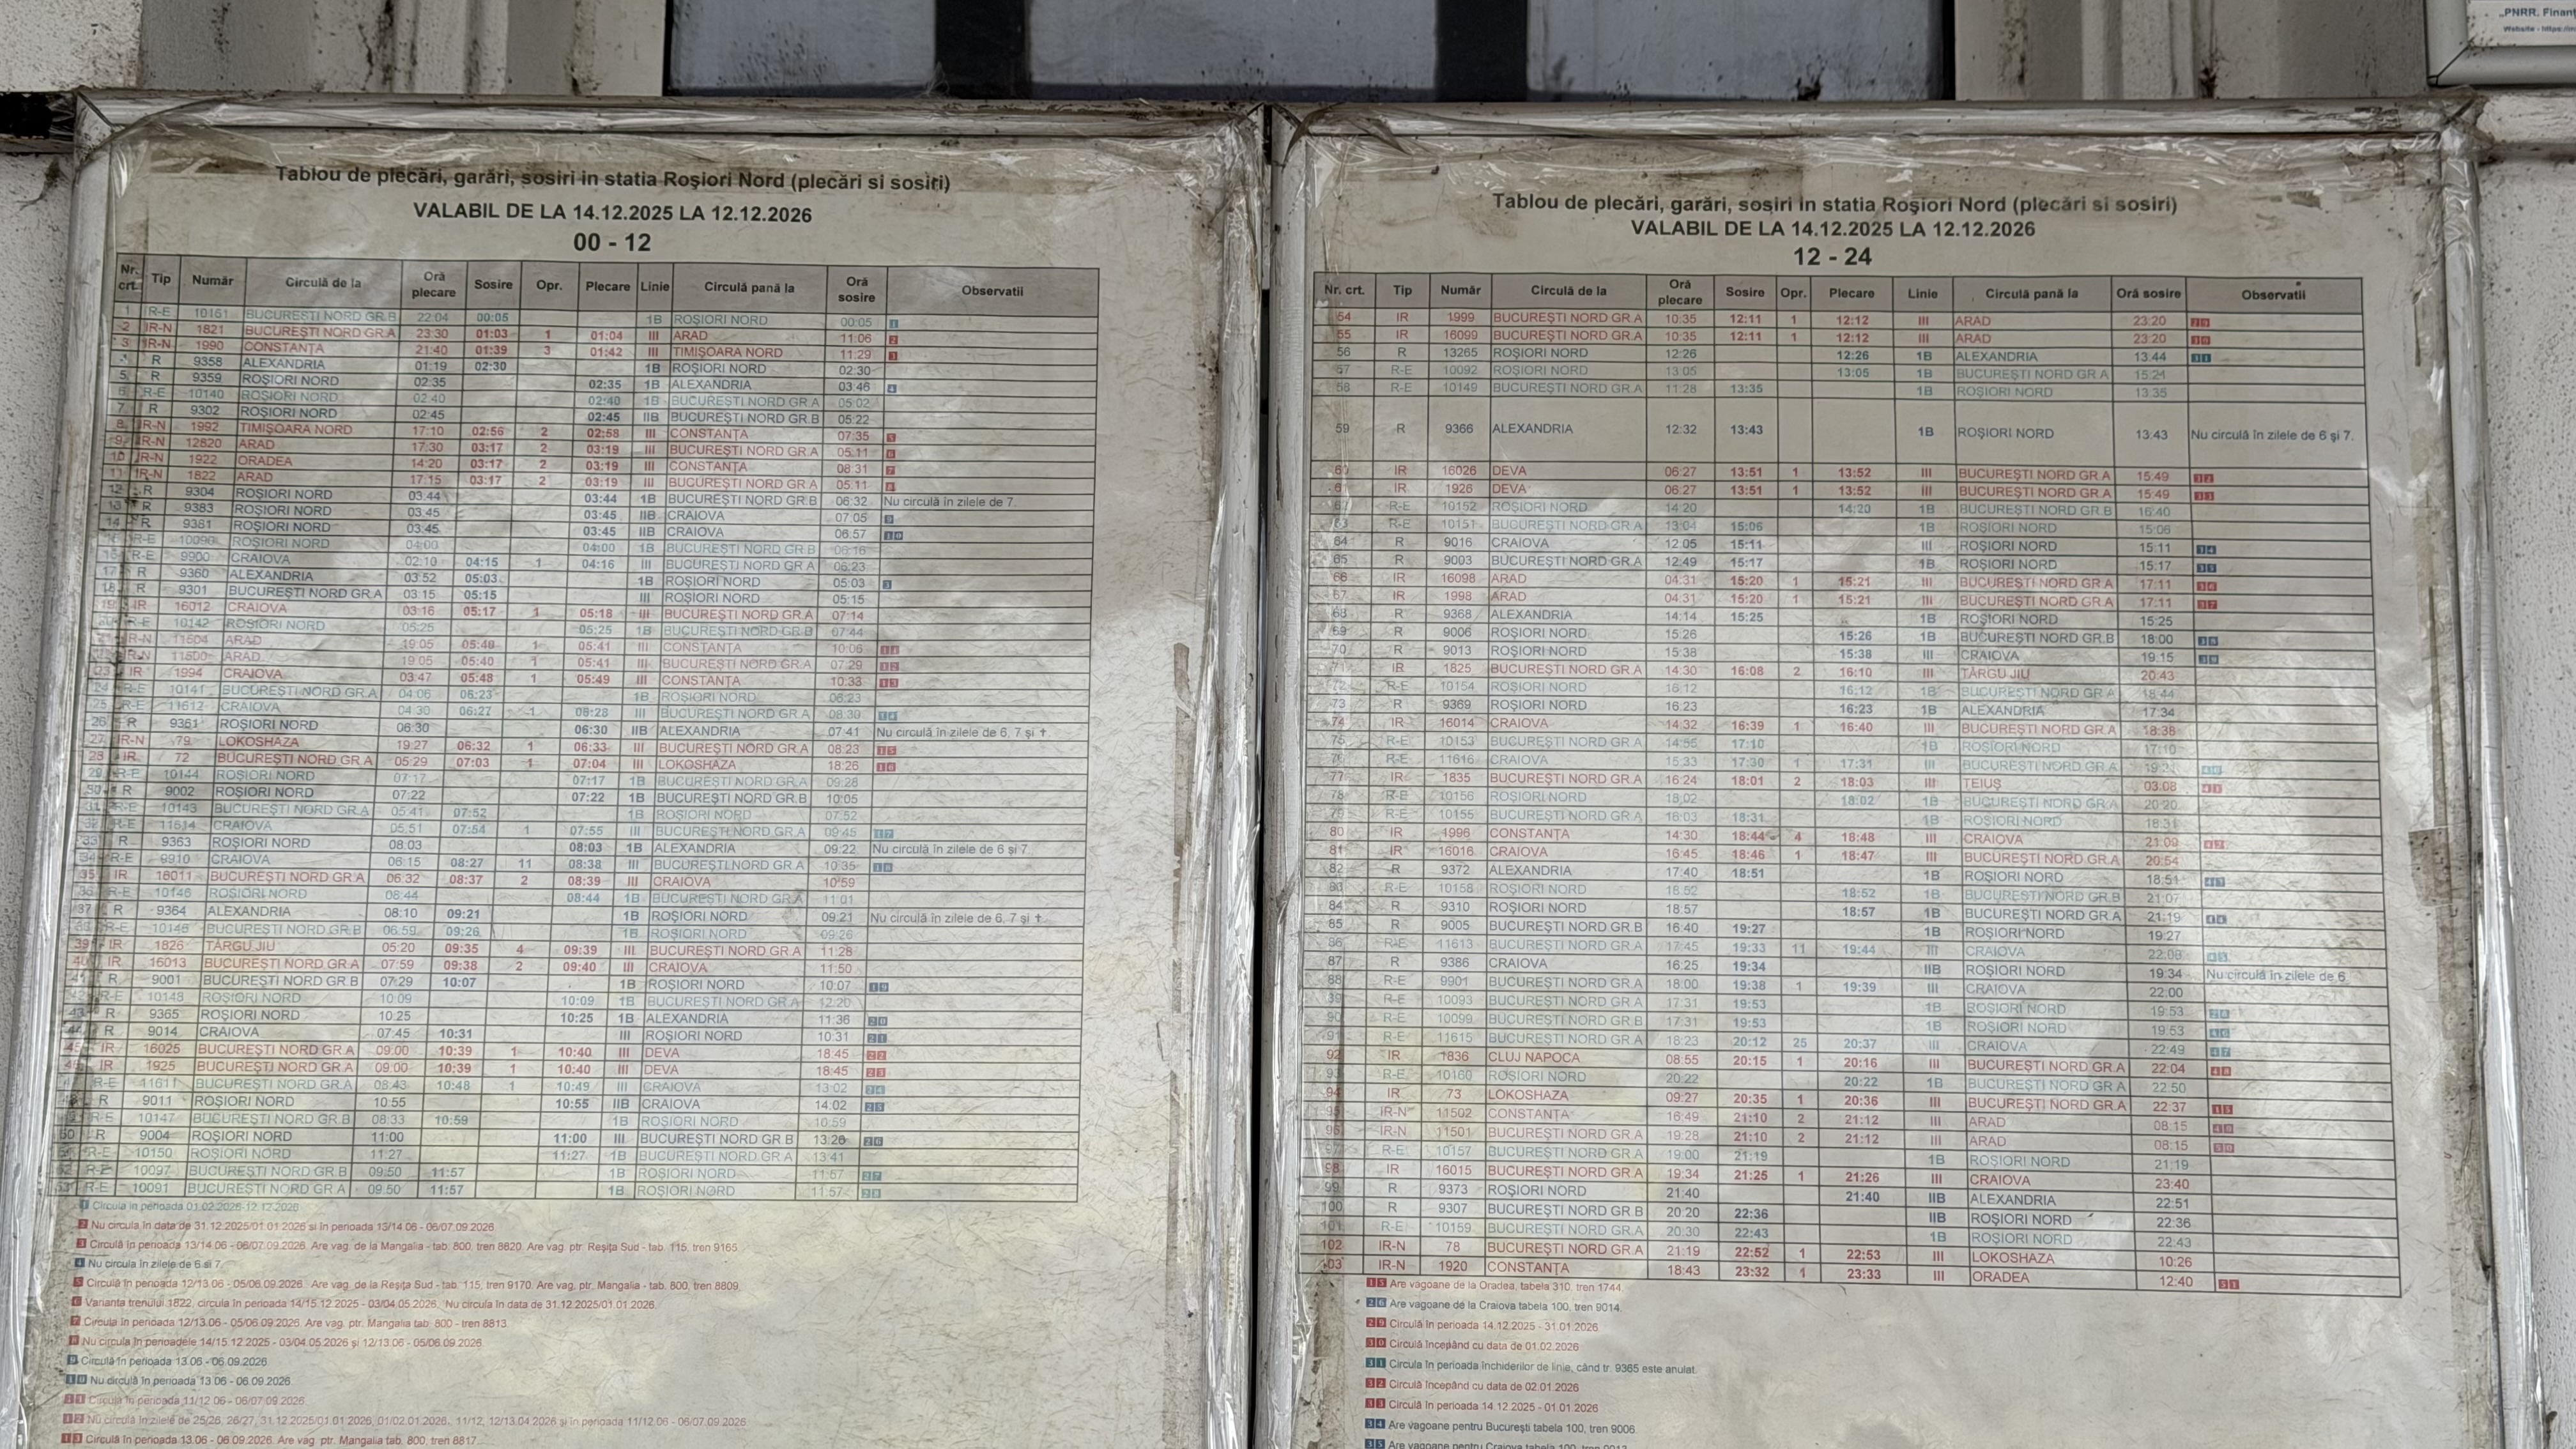 „PNRR. Finanț
Website - https://m
Tablou de plecări, garări, sosiri in statia Roşiori Nord (plecări si sosiri)
VALABIL DE LA 14.12.2025 LA 12.12.2026
00 - 12
Nr. crt. Tip Număr Circulă de la Oră plecare Sosire Opr. Plecare Linie Circulă pană la Oră sosire Observatii
1 R-E 10161 BUCUREŞTI NORD GR.B 22:04 00:05 1B ROŞIORI NORD 00:05 1
2 IR-N 1821 BUCUREŞTI NORD GR.A 23:30 01:03 1 01:04 III ARAD 11:06 2
3 IR-N 1990 CONSTANŢA 21:40 01:39 3 01:42 III TIMIŞOARA NORD 11:29 3
4 R 9358 ALEXANDRIA 01:19 02:30 1B ROŞIORI NORD 02:30
5 R 9359 ROŞIORI NORD 02:35 02:35 1B ALEXANDRIA 03:46 4
6 R-E 10140 ROŞIORI NORD 02:40 02:40 1B BUCUREŞTI NORD GR.A 05:02
7 R 9302 ROŞIORI NORD 02:45 02:45 IIB BUCUREŞTI NORD GR.B 05:22
8 IR-N 1992 TIMIŞOARA NORD 17:10 02:56 2 02:58 III CONSTANŢA 07:35 5
9 IR-N 12820 ARAD 17:30 03:17 2 03:19 III BUCUREŞTI NORD GR.A 05:11 6
10 IR-N 1922 ORADEA 14:20 03:17 2 03:19 III CONSTANŢA 08:31 7
11 IR-N 1822 ARAD 17:15 03:17 2 03:19 III BUCUREŞTI NORD GR.A 05:11 8
12 R 9304 ROŞIORI NORD 03:44 03:44 1B BUCUREŞTI NORD GR.B 06:32 Nu circulă în zilele de 7.
13 R 9383 ROŞIORI NORD 03:45 03:45 IIB CRAIOVA 07:05 9
14 R 9381 ROŞIORI NORD 03:45 03:45 IIB CRAIOVA 06:57 10
15 R-E 10096 ROŞIORI NORD 04:00 04:00 1B BUCUREŞTI NORD GR.B 06:16
16 R-E 9900 CRAIOVA 02:10 04:15 1 04:16 III BUCUREŞTI NORD GR.A 06:23
17 R 9360 ALEXANDRIA 03:52 05:03 1B ROŞIORI NORD 05:03 3
18 R 9301 BUCUREŞTI NORD GR.A 03:15 05:15 III ROŞIORI NORD 05:15
19 IR 16012 CRAIOVA 03:16 05:17 1 05:18 III BUCUREŞTI NORD GR.A 07:14
20 R-E 10142 ROŞIORI NORD 05:25 05:25 1B BUCUREŞTI NORD GR.B 07:44
21 IR-N 11504 ARAD 19:05 05:40 1 05:41 III CONSTANŢA 10:06 11
22 IR-N 11500 ARAD 19:05 05:40 1 05:41 III BUCUREŞTI NORD GR.A 07:29 12
23 IR 1994 CRAIOVA 03:47 05:48 1 05:49 III CONSTANŢA 10:33 13
24 R-E 10141 BUCUREŞTI NORD GR.A 04:06 06:23 1B ROŞIORI NORD 06:23
25 R-E 11612 CRAIOVA 04:30 06:27 1 06:28 III BUCUREŞTI NORD GR.A 08:30 14
26 R 9361 ROŞIORI NORD 06:30 06:30 IIB ALEXANDRIA 07:41 Nu circulă în zilele de 6, 7 şi ✝.
27 IR-N 79 LOKOSHAZA 19:27 06:32 1 06:33 III BUCUREŞTI NORD GR.A 08:23 15
28 IR 72 BUCUREŞTI NORD GR.A 05:29 07:03 1 07:04 III LOKOSHAZA 18:26 16
29 R-E 10144 ROŞIORI NORD 07:17 07:17 1B BUCUREŞTI NORD GR.A 09:28
30 R 9002 ROŞIORI NORD 07:22 07:22 1B BUCUREŞTI NORD GR.B 10:05
31 R-E 10143 BUCUREŞTI NORD GR.A 05:41 07:52 1B ROŞIORI NORD 07:52
32 R-E 11614 CRAIOVA 05:51 07:54 1 07:55 III BUCUREŞTI NORD GR.A 09:45 17
33 R 9363 ROŞIORI NORD 08:03 08:03 1B ALEXANDRIA 09:22 Nu circulă în zilele de 6 şi 7.
34 R-E 9910 CRAIOVA 06:15 08:27 11 08:38 III BUCUREŞTI NORD GR.A 10:35 18
35 IR 16011 BUCUREŞTI NORD GR.A 06:32 08:37 2 08:39 III CRAIOVA 10:59
36 R-E 10146 ROŞIORI NORD 08:44 08:44 1B BUCUREŞTI NORD GR.A 11:01
37 R 9364 ALEXANDRIA 08:10 09:21 1B ROŞIORI NORD 09:21 Nu circulă în zilele de 6, 7 şi ✝.
38 R-E 10145 BUCUREŞTI NORD GR.B 06:59 09:26 1B ROŞIORI NORD 09:26
39 IR 1826 TÂRGU JIU 05:20 09:35 4 09:39 III BUCUREŞTI NORD GR.A 11:28
40 IR 16013 BUCUREŞTI NORD GR.A 07:59 09:38 2 09:40 III CRAIOVA 11:50
41 R 9001 BUCUREŞTI NORD GR.B 07:29 10:07 1B ROŞIORI NORD 10:07 19
42 R-E 10148 ROŞIORI NORD 10:09 10:09 1B BUCUREŞTI NORD GR.A 12:20
43 R 9365 ROŞIORI NORD 10:25 10:25 1B ALEXANDRIA 11:36 20
44 R 9014 CRAIOVA 07:45 10:31 III ROŞIORI NORD 10:31 21
45 IR 16025 BUCUREŞTI NORD GR.A 09:00 10:39 1 10:40 III DEVA 18:45 22
46 IR 1925 BUCUREŞTI NORD GR.A 09:00 10:39 1 10:40 III DEVA 18:45 23
47 R-E 11611 BUCUREŞTI NORD GR.A 08:43 10:48 1 10:49 III CRAIOVA 13:02 24
48 R 9011 ROŞIORI NORD 10:55 10:55 IIB CRAIOVA 14:02 25
49 R-E 10147 BUCUREŞTI NORD GR.B 08:33 10:59 1B ROŞIORI NORD 10:59
50 R 9004 ROŞIORI NORD 11:00 11:00 III BUCUREŞTI NORD GR.B 13:26 26
51 R-E 10150 ROŞIORI NORD 11:27 11:27 1B BUCUREŞTI NORD GR.A 13:41
52 R-E 10097 BUCUREŞTI NORD GR.B 09:50 11:57 1B ROŞIORI NORD 11:57 27
53 R-E 10091 BUCUREŞTI NORD GR.A 09:50 11:57 1B ROŞIORI NORD 11:57 28
1 Circulă în perioada 01.02.2026-12.12.2026
2 Nu circula în data de 31.12.2025/01.01.2026 si în perioada 13/14.06 - 06/07.09.2026
3 Circulă în perioada 13/14.06 - 06/07.09.2026. Are vag. de la Mangalia - tab. 800, tren 8820. Are vag. ptr. Reşiţa Sud - tab. 115, tren 9165.
4 Nu circulă în zilele de 6 si 7.
5 Circulă în perioada 12/13.06 - 05/06.09.2026. Are vag. de la Reşiţa Sud - tab. 115, tren 9170. Are vag. ptr. Mangalia - tab. 800, tren 8809.
6 Varianta trenului 1822, circula în perioada 14/15.12.2025 - 03/04.05.2026. Nu circula în data de 31.12.2025/01.01.2026.
7 Circula în perioada 12/13.06 - 05/06.09.2026. Are vag. ptr. Mangalia tab. 800 - tren 8813.
8 Nu circula în perioadele 14/15.12.2025 - 03/04.05.2026 şi 12/13.06 - 05/06.09.2026
9 Circulă în perioada 13.06 - 06.09.2026.
10 Nu circulă în perioada 13.06 - 06.09.2026.
11 Circulă în perioada 11/12.06 - 06/07.09.2026.
12 Nu circulă în zilele de 25/26, 26/27, 31.12.2025/01.01.2026, 01/02.01.2026, 11/12, 12/13.04.2026 şi în perioada 11/12.06 - 06/07.09.2026
13 Circulă în perioada 13.06 - 06.09.2026. Are vag. ptr. Mangalia tab. 800, tren 8817.
Tablou de plecări, garări, sosiri in statia Roşiori Nord (plecări si sosiri)
VALABIL DE LA 14.12.2025 LA 12.12.2026
12 - 24
Nr. crt. Tip Număr Circulă de la Oră plecare Sosire Opr. Plecare Linie Circulă pană la Oră sosire Observatii
54 IR 1999 BUCUREŞTI NORD GR.A 10:35 12:11 1 12:12 III ARAD 23:20 29
55 IR 16099 BUCUREŞTI NORD GR.A 10:35 12:11 1 12:12 III ARAD 23:20 30
56 R 13265 ROŞIORI NORD 12:26 12:26 1B ALEXANDRIA 13:44 31
57 R-E 10092 ROŞIORI NORD 13:05 13:05 1B BUCUREŞTI NORD GR.A 15:21
58 R-E 10149 BUCUREŞTI NORD GR.A 11:28 13:35 1B ROŞIORI NORD 13:35
59 R 9366 ALEXANDRIA 12:32 13:43 1B ROŞIORI NORD 13:43 Nu circulă în zilele de 6 şi 7.
60 IR 16026 DEVA 06:27 13:51 1 13:52 III BUCUREŞTI NORD GR.A 15:49 32
61 IR 1926 DEVA 06:27 13:51 1 13:52 III BUCUREŞTI NORD GR.A 15:49 33
62 R-E 10152 ROŞIORI NORD 14:20 14:20 1B BUCUREŞTI NORD GR.B 16:40
63 R-E 10151 BUCUREŞTI NORD GR.A 13:04 15:06 1B ROŞIORI NORD 15:06
64 R 9016 CRAIOVA 12:05 15:11 III ROŞIORI NORD 15:11 34
65 R 9003 BUCUREŞTI NORD GR.A 12:49 15:17 1B ROŞIORI NORD 15:17 35
66 IR 16098 ARAD 04:31 15:20 1 15:21 III BUCUREŞTI NORD GR.A 17:11 36
67 IR 1998 ARAD 04:31 15:20 1 15:21 III BUCUREŞTI NORD GR.A 17:11 37
68 R 9368 ALEXANDRIA 14:14 15:25 1B ROŞIORI NORD 15:25
69 R 9006 ROŞIORI NORD 15:26 15:26 1B BUCUREŞTI NORD GR.B 18:00 38
70 R 9013 ROŞIORI NORD 15:38 15:38 III CRAIOVA 19:15 39
71 IR 1825 BUCUREŞTI NORD GR.A 14:30 16:08 2 16:10 III TÂRGU JIU 20:43
72 R-E 10154 ROŞIORI NORD 16:12 16:12 1B BUCUREŞTI NORD GR.A 18:44
73 R 9369 ROŞIORI NORD 16:23 16:23 1B ALEXANDRIA 17:34
74 IR 16014 CRAIOVA 14:32 16:39 1 16:40 III BUCUREŞTI NORD GR.A 18:38
75 R-E 10153 BUCUREŞTI NORD GR.A 14:55 17:10 1B ROŞIORI NORD 17:10
76 R-E 11616 CRAIOVA 15:33 17:30 1 17:31 III BUCUREŞTI NORD GR.A 40
77 IR 1835 BUCUREŞTI NORD GR.A 16:24 18:01 2 18:03 III TEIUŞ 03:08 41
78 R-E 10156 ROŞIORI NORD 18:02 18:02 1B BUCUREŞTI NORD GR.A 20:20
79 R-E 10155 BUCUREŞTI NORD GR.A 16:03 18:31 1B ROŞIORI NORD 18:31
80 IR 1996 CONSTANŢA 14:30 18:44 4 18:48 III CRAIOVA 21:09 42
81 IR 16016 CRAIOVA 16:45 18:46 1 18:47 III BUCUREŞTI NORD GR.A 20:54
82 R 9372 ALEXANDRIA 17:40 18:51 1B ROŞIORI NORD 18:51 43
83 R-E 10158 ROŞIORI NORD 18:52 18:52 1B BUCUREŞTI NORD GR.B 21:07
84 R 9310 ROŞIORI NORD 18:57 18:57 1B BUCUREŞTI NORD GR.A 21:19 44
85 R 9005 BUCUREŞTI NORD GR.B 16:40 19:27 1B ROŞIORI NORD 19:27
86 R-E 11613 BUCUREŞTI NORD GR.A 17:45 19:33 11 19:44 III CRAIOVA 22:08 45
87 R 9386 CRAIOVA 16:25 19:34 IIB ROŞIORI NORD 19:34 Nu circulă în zilele de 6.
88 R-E 9901 BUCUREŞTI NORD GR.A 18:00 19:38 1 19:39 III CRAIOVA 22:00
89 R-E 10093 BUCUREŞTI NORD GR.A 17:31 19:53 1B ROŞIORI NORD 19:53 28
90 R-E 10099 BUCUREŞTI NORD GR.B 17:31 19:53 1B ROŞIORI NORD 19:53 46
91 R-E 11615 BUCUREŞTI NORD GR.A 18:23 20:12 25 20:37 III CRAIOVA 22:49 47
92 IR 1836 CLUJ NAPOCA 08:55 20:15 1 20:16 III BUCUREŞTI NORD GR.A 22:04 48
93 R-E 10160 ROŞIORI NORD 20:22 20:22 1B BUCUREŞTI NORD GR.A 22:50
94 IR 73 LOKOSHAZA 09:27 20:35 1 20:36 III BUCUREŞTI NORD GR.A 22:37 15
95 IR-N 11502 CONSTANŢA 16:49 21:10 2 21:12 III ARAD 08:15 49
96 IR-N 11501 BUCUREŞTI NORD GR.A 19:28 21:10 2 21:12 III ARAD 08:15 50
97 R-E 10157 BUCUREŞTI NORD GR.A 19:00 21:19 1B ROŞIORI NORD 21:19
98 IR 16015 BUCUREŞTI NORD GR.A 19:34 21:25 1 21:26 III CRAIOVA 23:40
99 R 9373 ROŞIORI NORD 21:40 21:40 IIB ALEXANDRIA 22:51
100 R 9307 BUCUREŞTI NORD GR.B 20:20 22:36 IIB ROŞIORI NORD 22:36
101 R-E 10159 BUCUREŞTI NORD GR.A 20:30 22:43 1B ROŞIORI NORD 22:43
102 IR-N 78 BUCUREŞTI NORD GR.A 21:19 22:52 1 22:53 III LOKOSHAZA 10:26
103 IR-N 1920 CONSTANŢA 18:43 23:32 1 23:33 III ORADEA 12:40 51
15 Are vagoane de la Oradea, tabela 310, tren 1744.
26 Are vagoane de la Craiova tabela 100, tren 9014.
29 Circulă în perioada 14.12.2025 - 31.01.2026
30 Circulă începând cu data de 01.02.2026
31 Circula în perioada închiderilor de linie, când tr. 9365 este anulat.
32 Circulă începând cu data de 02.01.2026
33 Circulă în perioada 14.12.2025 - 01.01.2026
34 Are vagoane pentru Bucureşti tabela 100, tren 9006.
35 Are vagoane pentru Craiova tabela 100, tren 9013.